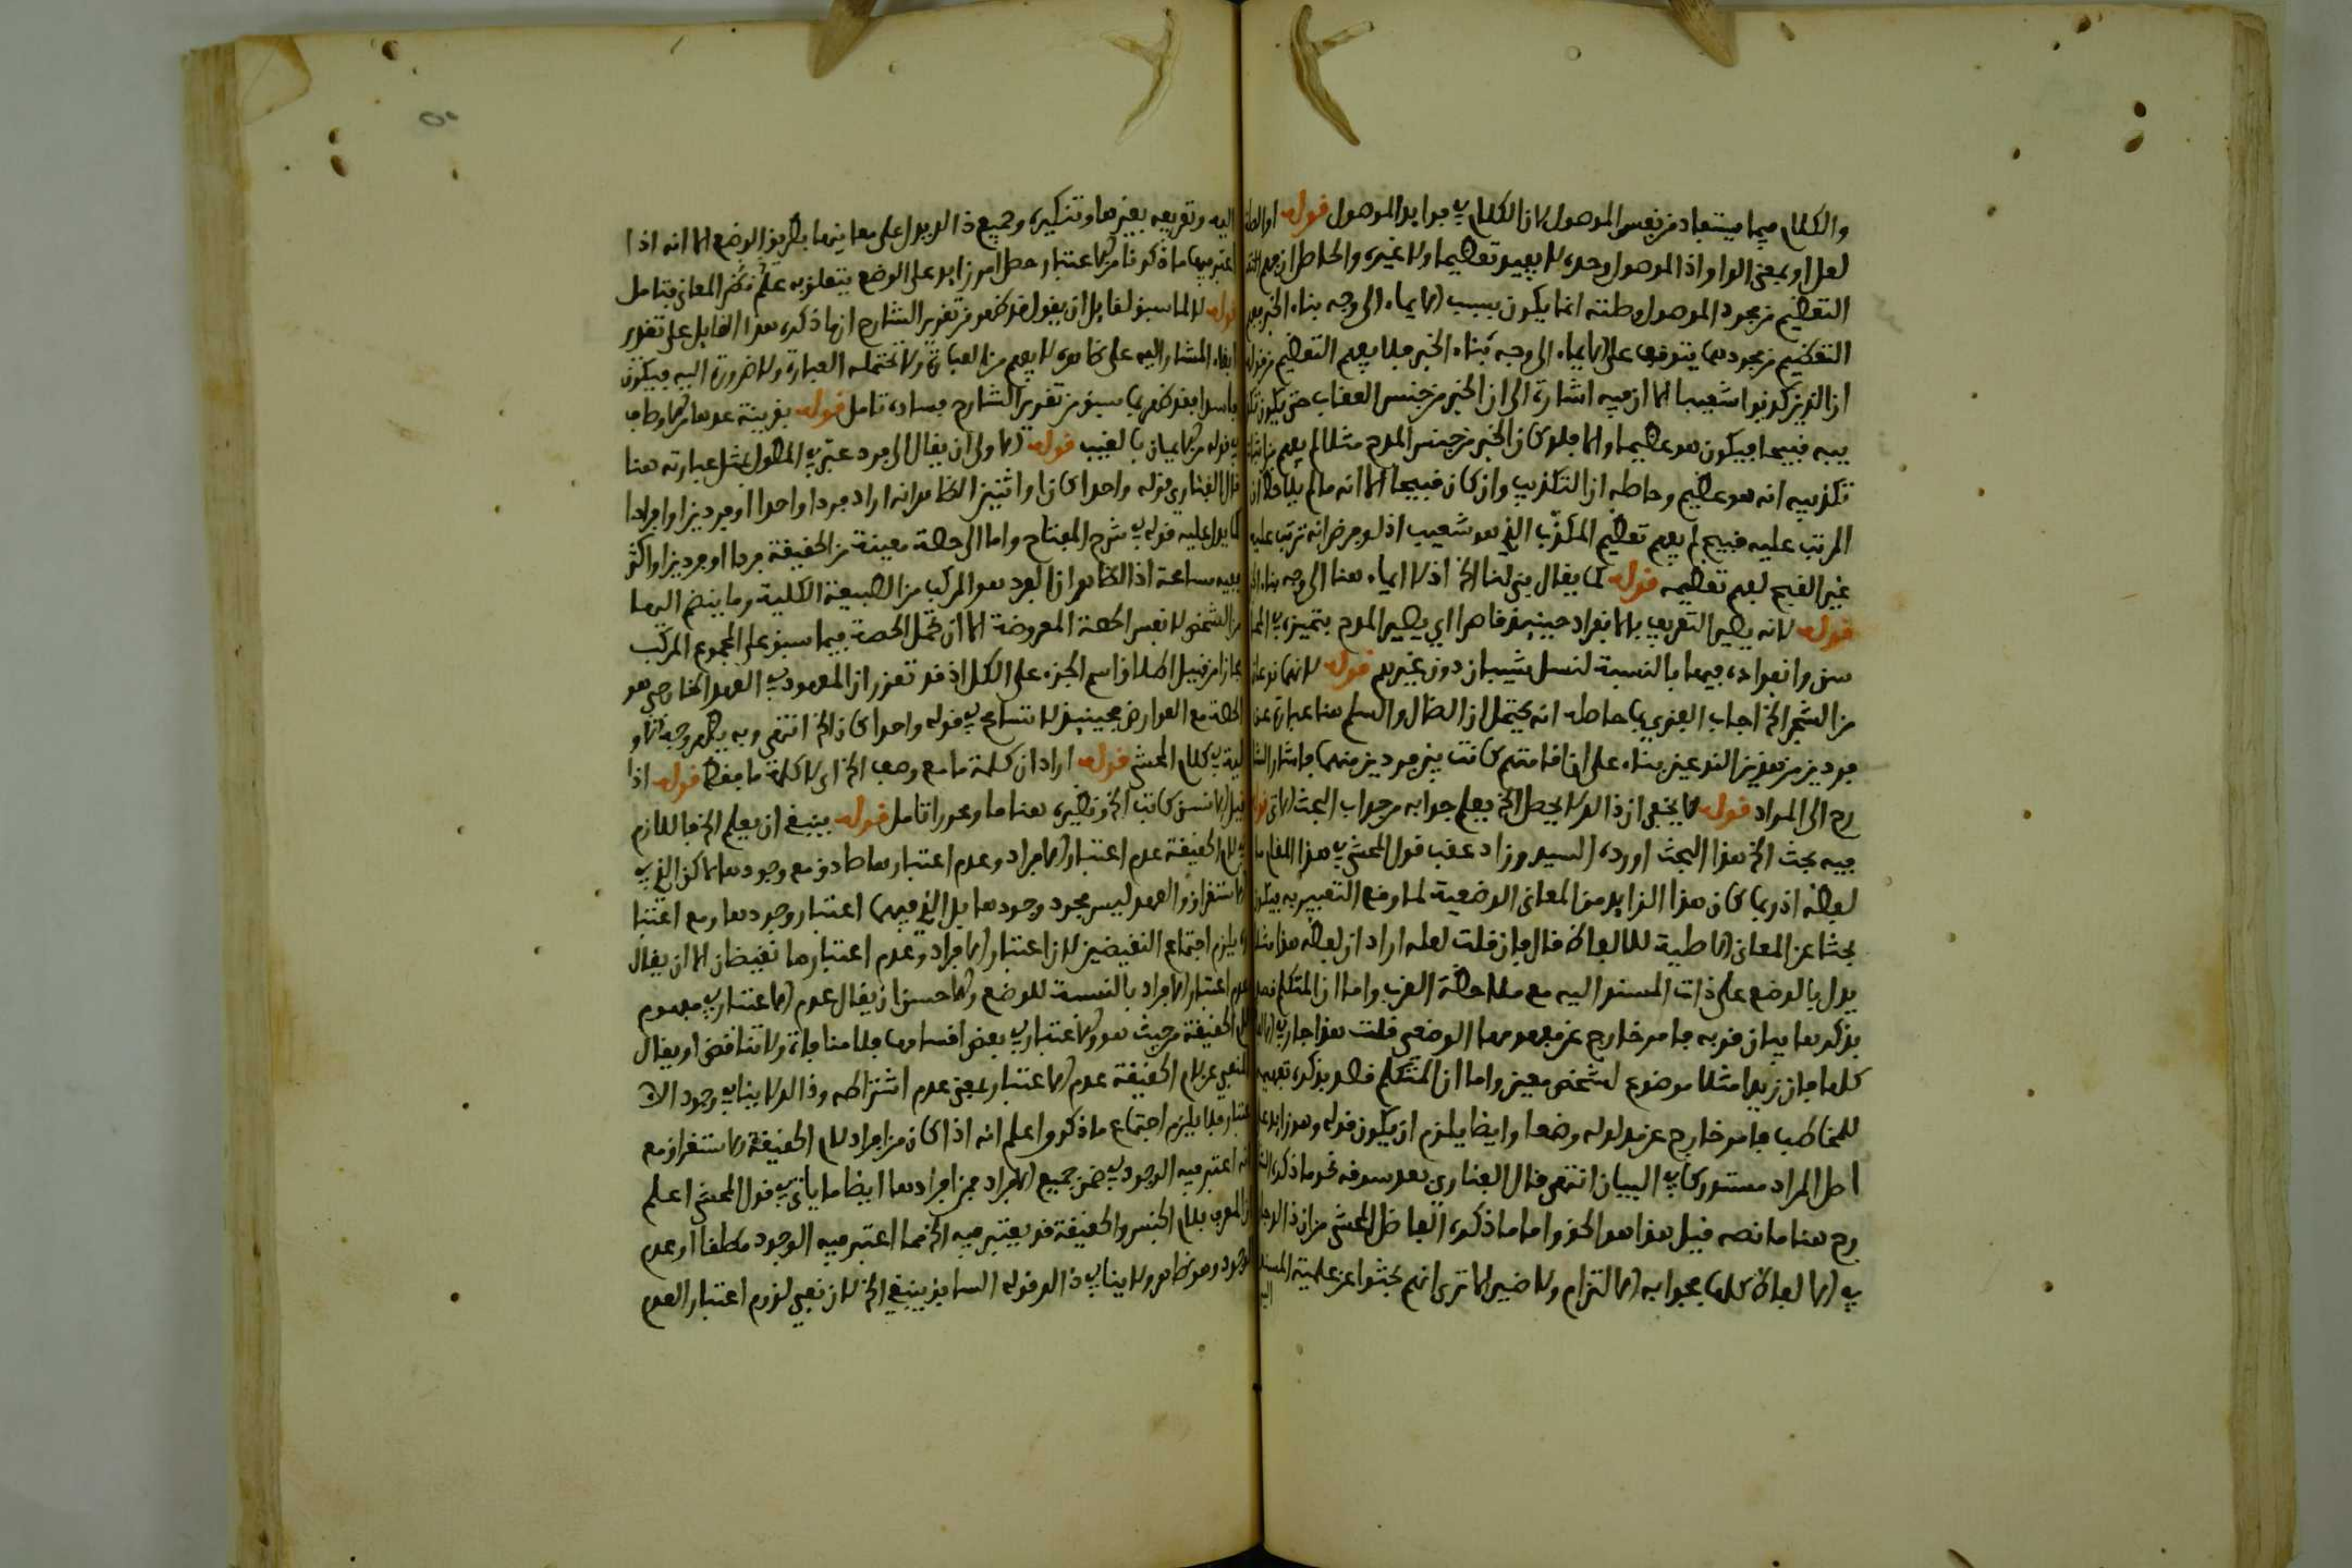 والكلام فيما يستفاد من نفس الموصول لان الكلام في فوايد الموصول قوله او
لعل او بمعنى الواو اذ الموصول وحده لا يفيد تعظيما ولا غيره والحاصل ان فهم
التعظيم من مجرد الموصول وصلته انما يكون بسبب الايماء الى وجه بناء الخبر
التعظيم من مجردهما يتوقف على الايماء الى وجه بناء الخبر فلا يفهم التعظيم من قوله
ان الذين كذبوا شعيبا الا ان فيه اشارة الى ان الخبر من جنس العقاب حتى يكون
قبيحا فيكون هو عظيما والا فلو كان الخبر من جنس المدح مثلا لم يفهم من
تكذيبه انه هو عظيم وحاصله ان التكذيب وان كان قبيحا الا انه ما لم يلاحظ ان
المرتب عليه قبيح لم يفهم تعظيم المكذب الذي هو شعيب اذ لو فرض انه ترتب عليه
غير القبيح لفهم تعظيمه قوله كما يقال بنى لنا الخ اذ لا ايماء هنا الى وجه بناء
قوله لانه يصير التعريف بالانفراد حينئذ قاصرا اي يصير المدح بتميزه
وانفراده فيهما بالنسبة لنسل شيبان دون غيرهم قوله لانهما نوعان
من الشجر الخ اجاب الغزي بما حاصله انه يحتمل ان الضال والسلم هنا عبارة عن
فردين من هذين النوعين بناء على ان اقامتهم كانت بين فردين منهما فاشار
رح الى المراد قوله لا يخفى ان ذا لا يحصل الخ يعلم جوابه من جواب البحث الاتي
فيه بحث الخ هذا البحث اورده السيد وزاد عقب قول المحشي في هذا المقام
لفظة اذ ربما كان هذا الزايد من المعاني الوضعية لما وقع التعبير به فيكون
بحثا عن المعاني الاصلية للالفاظ قال فان قلت لعله اراد ان لفظة هذا مثلا
يدل بالوضع على ذات المسند اليه مع ملاحظة القرب واما ان المتكلم قصد
بذكرها بيان قربه فامر خارج عن مفهومها الوضعي قلت هذا جار في
كلها فان زيدا مثلا موضوع لشخص معين واما ان المتكلم قصد بذكره تفهيمه
للمخاطب فامر خارج عن مدلوله وضعا وايضا يلزم ان يكون قوله وهو زايد على
اصل المراد مستدركا في البيان انتهى قال الفناري بعد سوقه نحو ما ذكره
رح هنا ما نصه قيل هذا هو الحق واما ما ذكره الفاضل المحشي من ان
في الالفاظ كلها فجوابه الالتزام ولا ضير الا ترى انهم بحثوا عن علمية المسند
اليه
اليه وتعريفه بغيرها وتنكيره وجميع ذا لا يدل على معانيها بطريق الوضع الا انه اذا
اعتبر فيها ما ذكرنا من الاعتبار حصل امر زايد على الوضع يتعلق به علم المعاني فتامل
قوله لما سبق لقايل ان يقول قد ظهر من تقرير الشارح انما ذكره هذا القايل على تقدير
ابقاء المشار اليه على ظاهره لا يفهم من العبارة ولا تحتمله العبارة ولا ضرورة اليه فيكون
فاسدا فقد ظهر بما سبق من تقرير الشارح فساده تامل قوله بقرينة عدها من اوصاف
في قوله من الايمان بالغيب قوله الاولى ان يقال الى فرد عبر في المطول بمثل عبارته هنا
قال الفناري قوله واحدا كان او اثنين الظاهر انه اراد فردا واحدا او فردين او افرادا
كما يدل عليه قوله في شرح المفتاح واما الى حصة معينة من الحقيقة فردا او فردين او اكثر
ففيه مسامحة اذ الظاهر ان الفرد هو المركب من الطبيعة الكلية وما ينضم اليها
من التشخص لا نفس الحصة المعروضة الا ان تحمل الحصة فيما سبق على المجموع المركب
مجازا من قبيل اطلاق اسم الجزء على الكل اذ قد تقرر ان المعهود في العهد الخارجي هو
الحصة مع العوارض فحينئذ لا تسامح في قوله واحدا كان الخ انتهى وبه يظهر وجه
في كلام المحشي قوله اراد ان كلمة ما مع وصف الخ اي لا كلمة ما فقط قوله اذا
قيل الانسان كاتب الخ ونظيره هنا ما وعدوا تامل قوله ينبغي ان يعلم الخ فاللازم
في لام الحقيقة عدم اعتبار الافراد وعدم اعتبارها صادق مع وجودها لاكن الذي في
الاستغراق والعهد ليس مجرد وجودها بل الذي فيهما اعتبار وجودها ومع اعتبا
لا يلزم اجتماع النقيضين لان اعتبار الافراد وعدم اعتبارها نقيضان الا ان يقال
عدم اعتبار الافراد بالنسبة للوضع والاحسن ان يقال عدم الاعتبار في مفهوم
الحقيقة من حيث هو والاعتبار في بعض اقسامها فلا منافاة ولا تناقض او يقال
المنفي عن لام الحقيقة عدم الاعتبار بمعنى عدم اشتراطه وذا لا ينافي وجود الا
عتبار فلا يلزم اجتماع ما ذكر واعلم انه اذا كان من افراد لام الحقيقة الاستغراق مع
انه اعتبر فيه الوجود في ضمن جميع الافراد فمن افرادها ايضا ما ياتي في قول المحشي اعلم
ان المعرف بلام الجنس والحقيقة قد يعتبر فيه الخ فما اعتبر فيه الوجود مطلقا او عدم
الوجود وهو ظاهر ولا ينافي ذا لا قوله السابق ينبغي الخ لان نفي لزوم اعتبار العدم